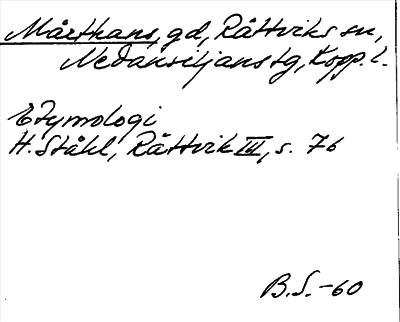 Mårthans, gd, Rättviks sn,
Nedansiljans tg, Kopp. l.
Etymologi
H. Ståhl, Rättvik III, s. 76
B.S. -60